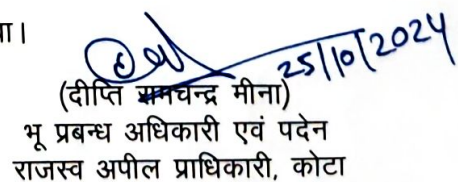 ा।
25/10/2024
(दीप्ति रामचन्द्र मीना)
भू प्रबन्ध अधिकारी एवं पदेन
राजस्व अपील प्राधिकारी, कोटा